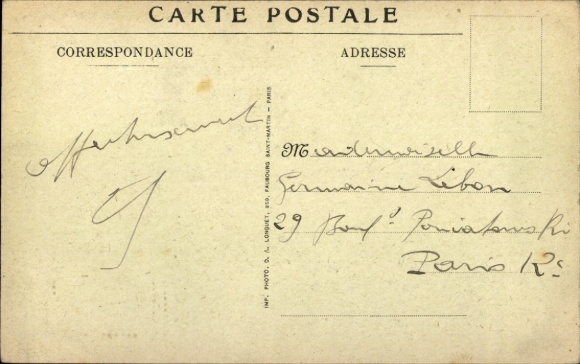 CARTE POSTALE
CORRESPONDANCE
ADRESSE
Affectueusement
IMP. PHOTO. D. A. LONGUET, 250, FAUBOURG SAINT-MARTIN — PARIS
Mademoiselle
Germaine Lebon
29 Boul^d Poniatowski
Paris